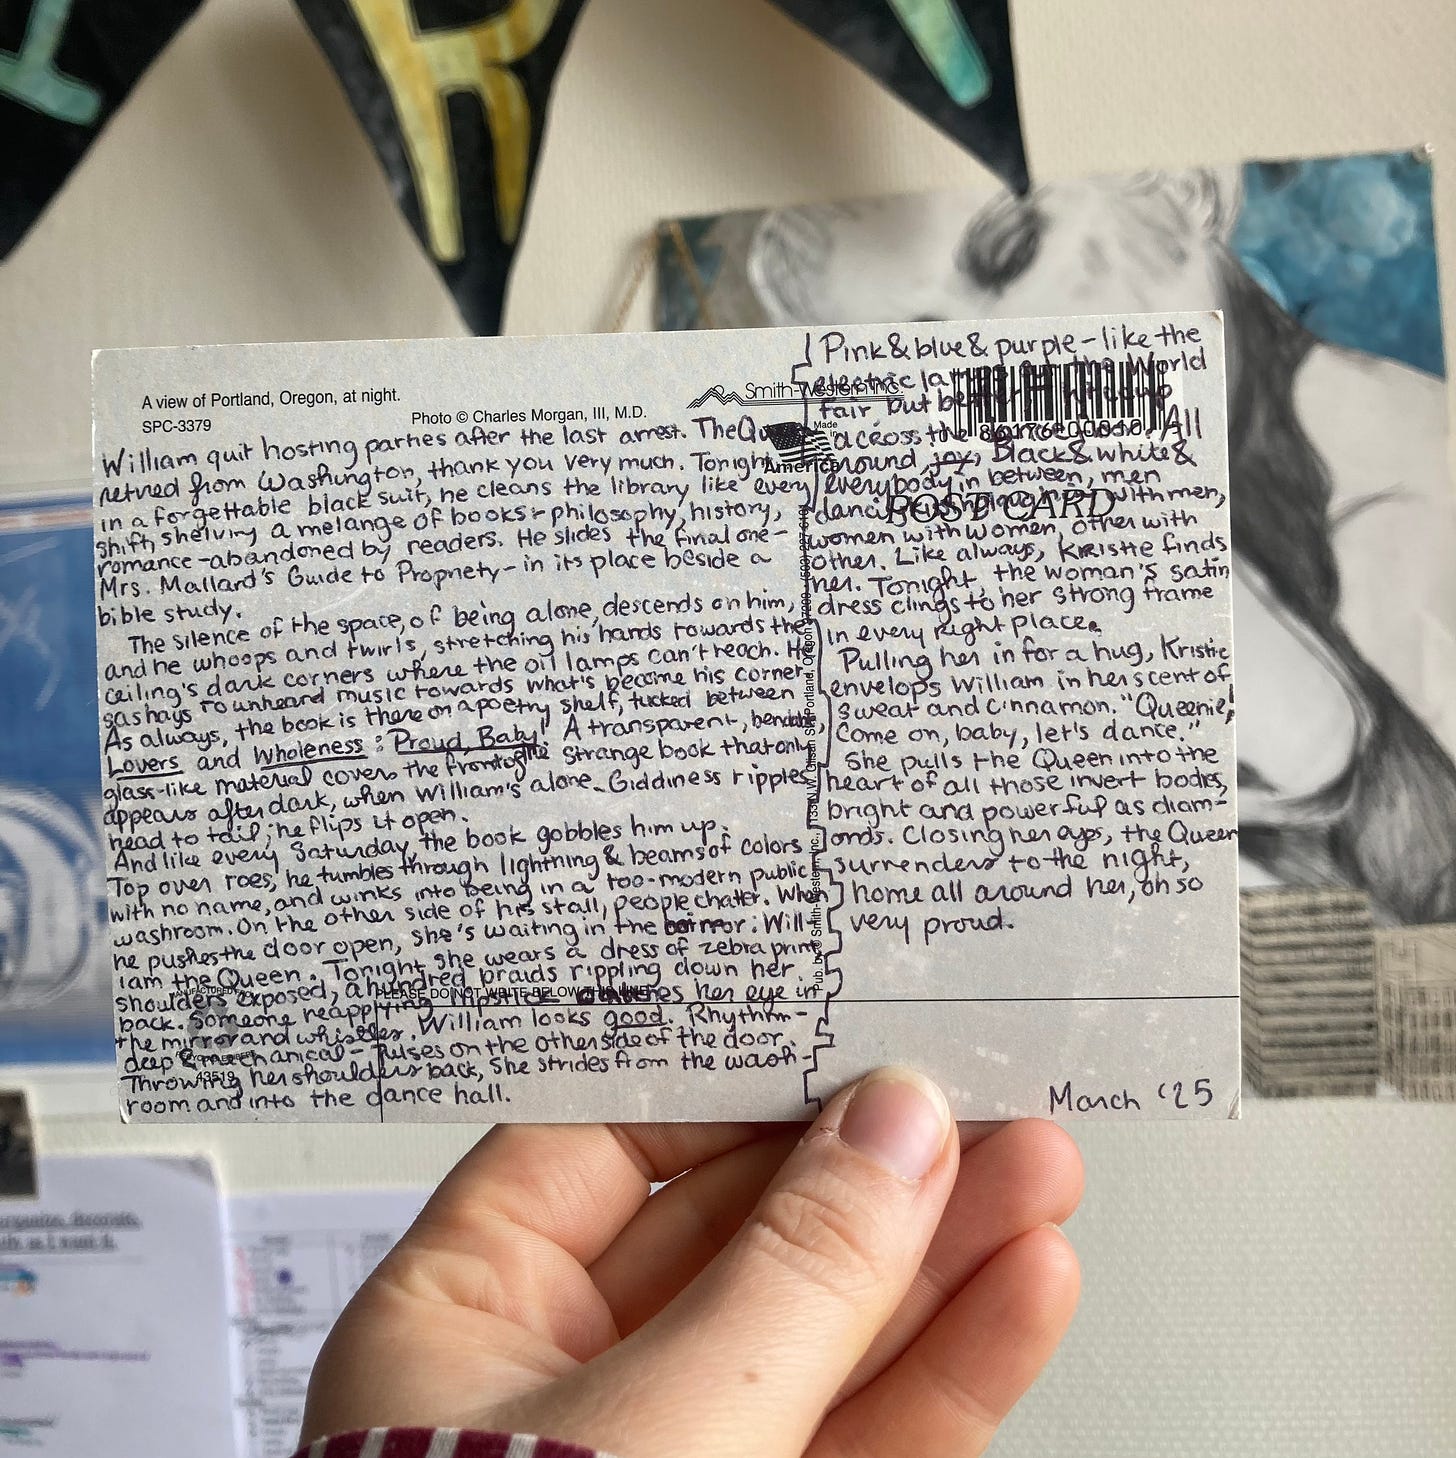 R
A view of Portland, Oregon, at night.
SPC-3379
Photo © Charles Morgan, III, M.D.
Smith-Western Inc
Made in America
POST CARD
William quit hosting parties after the last arrest. The
retired from Washington, thank you very much. Tonight
in a forgettable black suit, he cleans the library like every
shift, shelving a melange of books - philosophy, history,
romance - abandoned by readers. He slides the final one -
Mrs. Mallard's Guide to Propriety - in its place beside a
bible study.
The silence of the space, of being alone, descends on him,
and he whoops and twirls, stretching his hands towards the
ceiling's dark corners where the oil lamps can't reach. He
sashays to unheard music towards what's become his corner.
As always, the book is there on a poetry shelf, tucked between
Lovers and Wholeness: Proud, Baby! A transparent, bendable
glass-like material covers the front of the strange book that only
appears after dark, when William's alone. Giddiness ripples
head to tail; he flips it open.
And like every Saturday, the book gobbles him up.
Top over toes, he tumbles through lightning & beams of colors
with no name, and winks into being in a too-modern public
washroom. On the other side of his stall, people chatter. When
he pushes the door open, she's waiting in the mirror: Will-
iam the Queen. Tonight, she wears a dress of zebra print
shoulders exposed, a hundred braids rippling down her
back. Someone reapplying lipstick catches her eye in
the mirror and whistles. William looks good. Rhythm -
deep & mechanical - pulses on the other side of the door.
Throwing her shoulders back, she strides from the wash-
room and into the dance hall.
PLEASE DO NOT WRITE BELOW THIS LINE
Pub. by © Smith-Western, Inc.
Portland, Oregon
Pink & blue & purple - like the
electric the World
fair, but better
across the All
around, joy, Black & white &
everybody in between, men
dancing with men,
women with women, other with
other. Like always, Kristie finds
her. Tonight, the woman's satin
dress clings to her strong frame
in every right place.
Pulling her in for a hug, Kristie
envelops William in her scent of
sweat and cinnamon. "Queenie,
come on, baby, let's dance."
She pulls the Queen into the
heart of all those invert bodies,
bright and powerful as diam-
onds. Closing her eyes, the Queen
surrenders to the night,
home all around her, oh so
very proud.
March '25